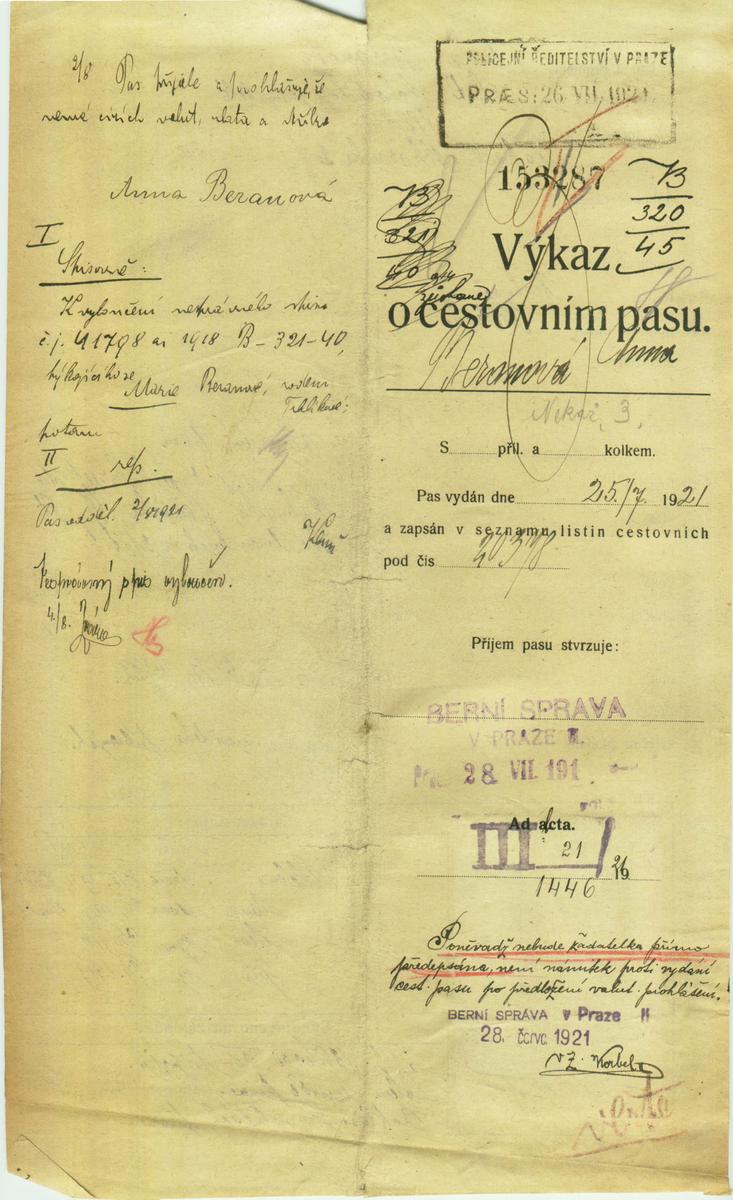 2/8 Pas přijala a prohlašuje, že
nemá cizích valut, zlata a stříbra
Anna Beranová
I
Spisovně:
K vyloučení nesprávného spisu
č.j. 41798 ai 1918 B-321-40,
týkajícího se
Marie Beranové, rozené
potom
II rep.
Pas odděl. 2/VIII 21
Nesprávný spis vyloučen.
4./8.
POLICEJNÍ ŘEDITELSTVÍ V PRAZE
PRÆS: 26. VII. 1921
153287
B
321
40
B
320
45
Výkaz
o cestovním pasu.
Beranová Anna
Nekáz. 3,
S příl. a kolkem.
Pas vydán dne 25./7. 1921
a zapsán v seznamu listin cestovních
pod čís
Příjem pasu stvrzuje:
BERNÍ SPRAVA
V PRAZE II.
28. VII. 191
Ad acta.
III 21
1446
19 21
Poněvadž nebude žadatelka přímo
předepsána, není námitek proti vydání
cest. pasu po předložení valut. prohlášení.
BERNÍ SPRÁVA v Praze II
28. červc. 1921
v z. Korbel